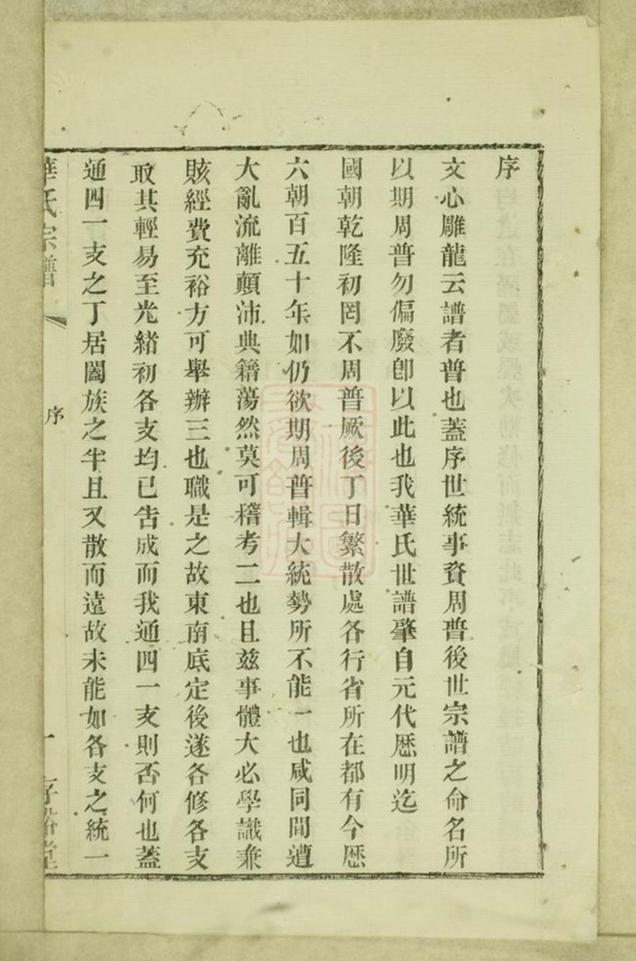 序
文心雕龍云譜者普也蓋序世統事資周普後世宗譜之命名所
以期周普勿偏廢卽以此也我華氏世譜肇自元代歷明迄
國朝乾隆初罔不周普厥後丁日繁散處各行省所在都有今歷
六朝百五十年如仍欲期周普輯大統勢所不能一也咸同間遭
大亂流離顛沛典籍蕩然莫可稽考二也且茲事體大必學識兼
賅經費充裕方可舉辦三也職是之故東南底定後遂各修各支
取其輕易至光緒初各支均已告成而我通四一支則否何也蓋
通四一支之丁居闔族之半且又散而遠故未能如各支之統一
華氏宗譜
序
一
存裕堂